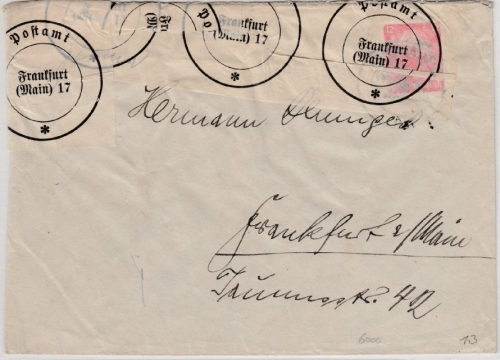 Postamt
Frankfurt
(Main) 17
*
Po
Frankfurt
(Main) 17
*
Postamt
Frankfurt
(Main) 17
*
Hermann
Frankfurt a/Main
Taunusstr. 42
6000
13